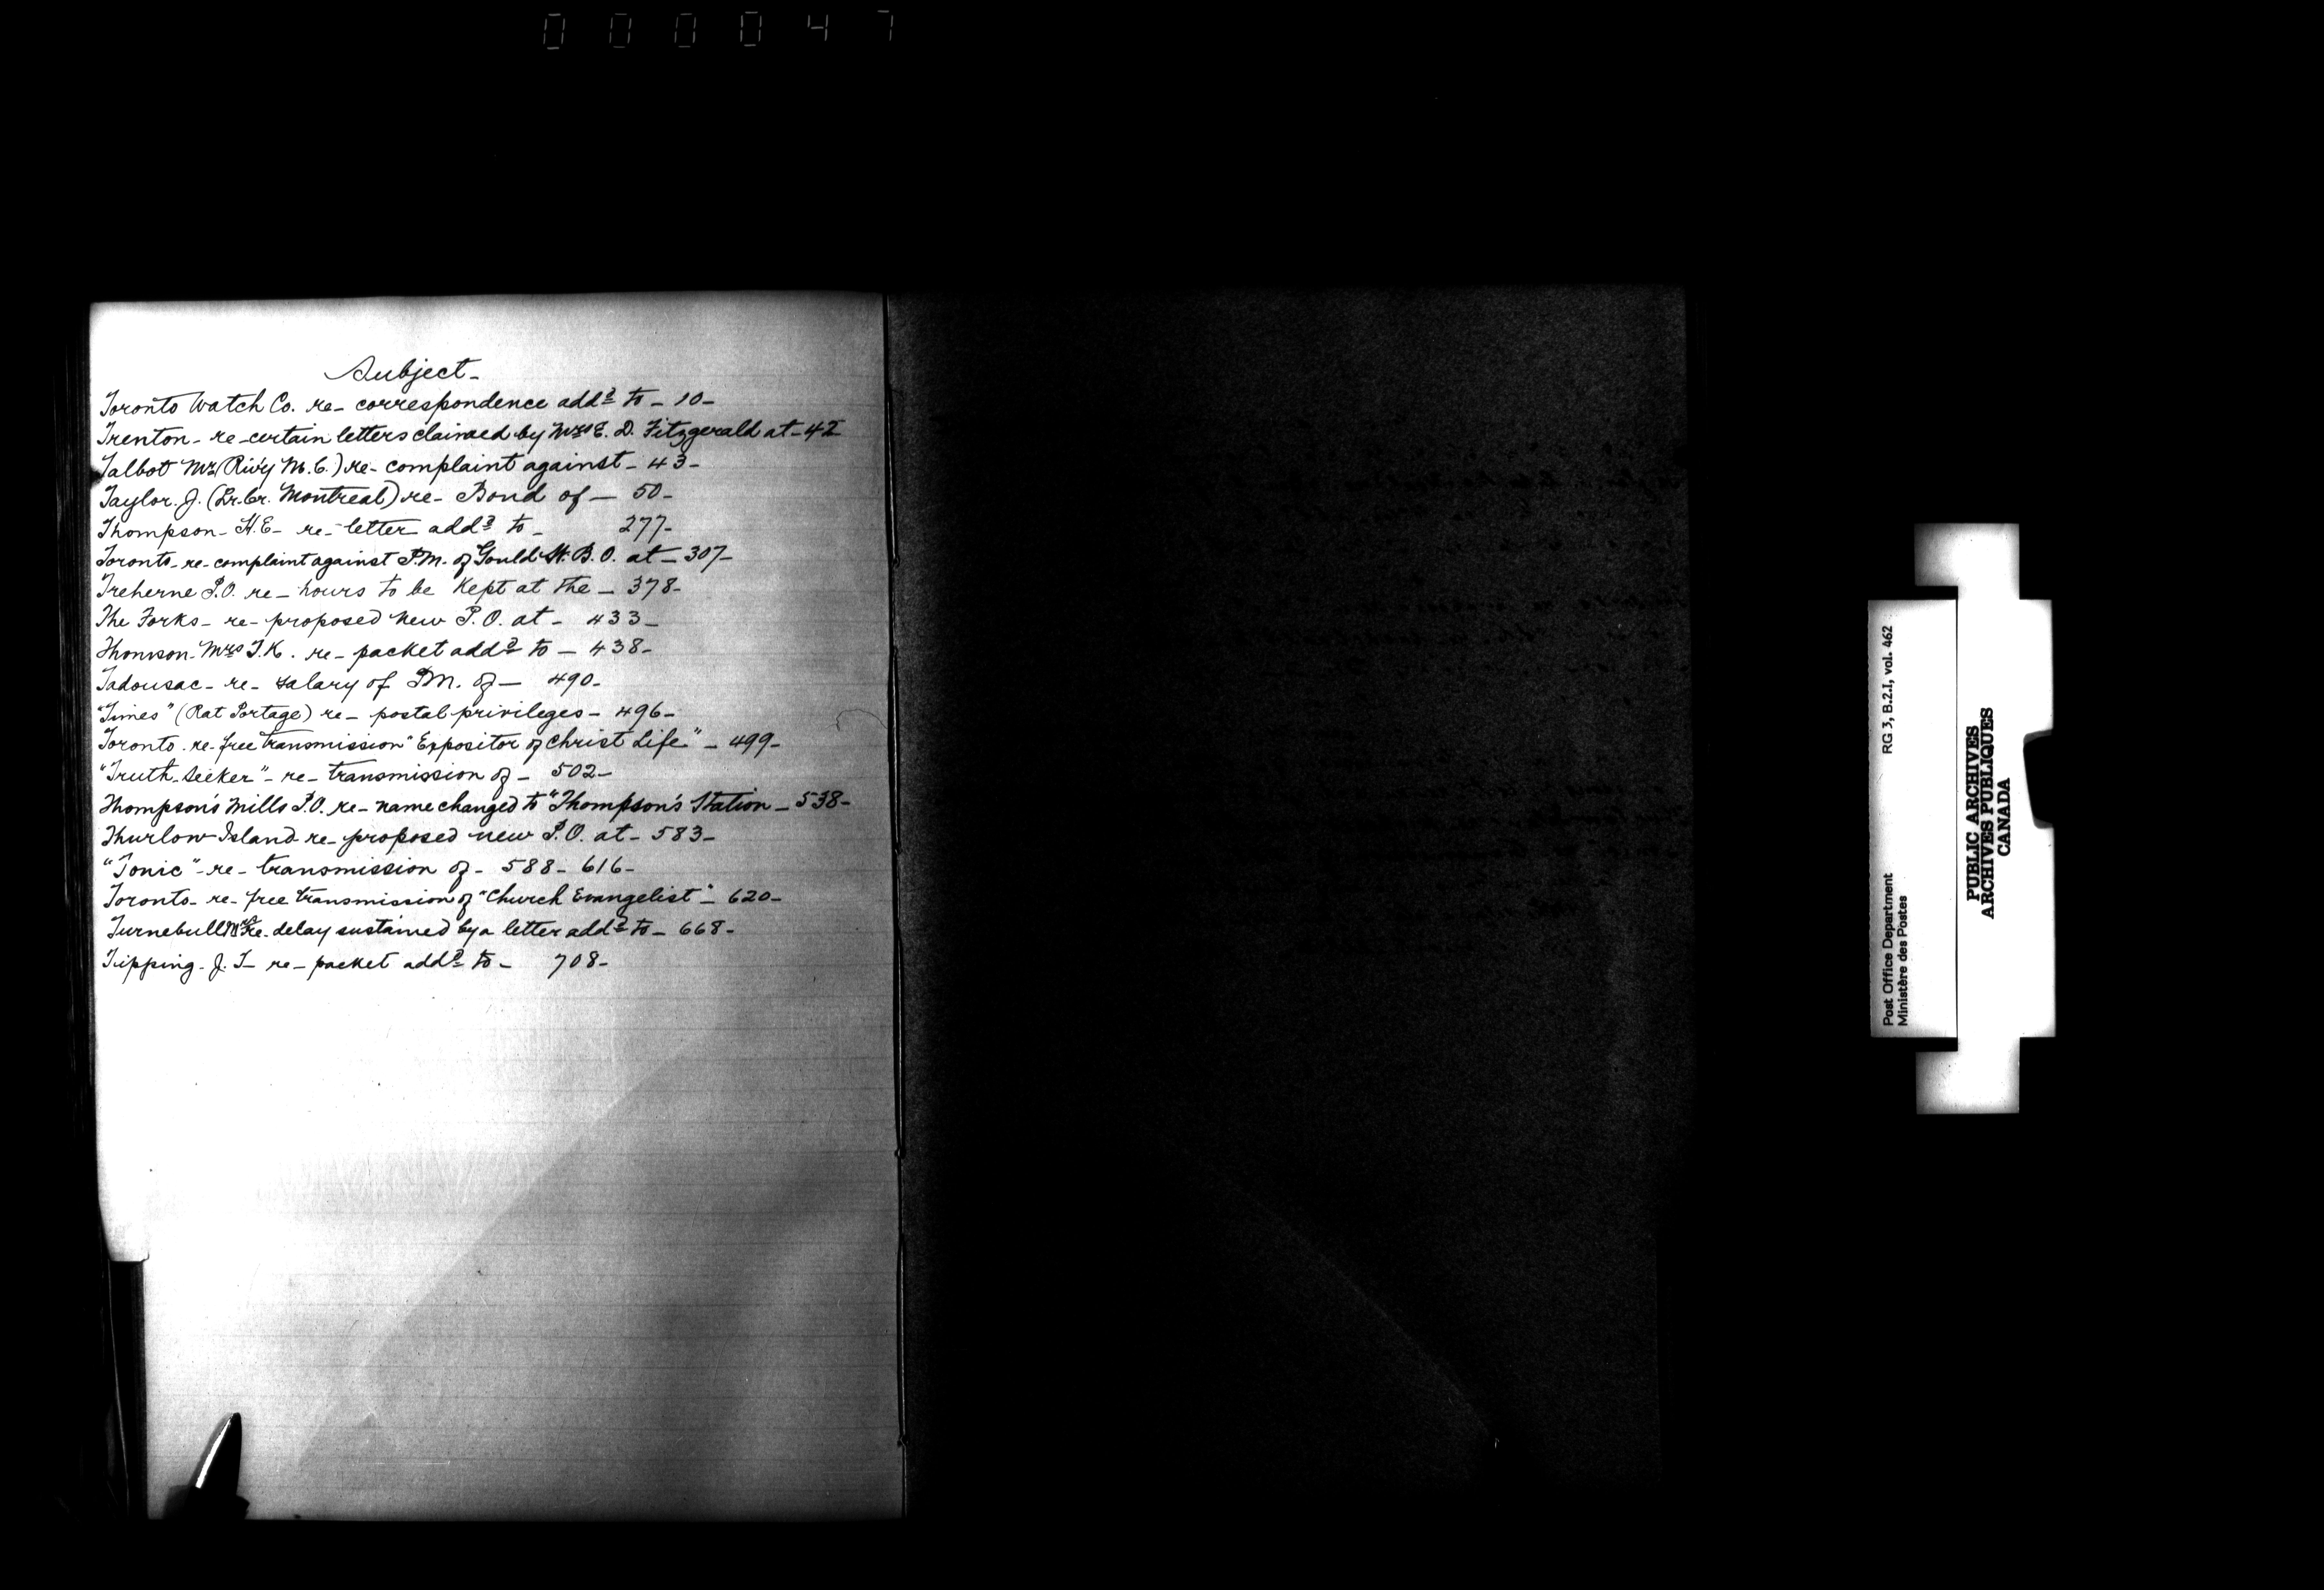 000047
Subject-
Toronto Watch Co. re- correspondence addd to - 10-
Trenton- re- certain letters claimed by Mrs E. D. Fitzgerald at- 42
Talbot Mr (Ri'y M.C.) re- complaint against- 43-
Taylor. J. (Lr. Cr. Montreal) re- Bond of- 50-
Thompson- H.E- re- letter addd to- 277-
Toronto- re- complaint against P.M. of Gould St. B.O. at- 307-
Treherne P.O. re- hours to be Kept at the - 378-
The Forks- re- proposed new P.O. at- 433-
Thomson- Mrs T.K. re- packet addd to - 438-
Tadousac- re- salary of P.M. of- 490-
"Times" (Rat Portage) re- postal privileges- 496-
Toronto. re- free transmission "Expositor of Christ Life" - 499-
"Truth-Seeker"- re- transmission of- 502-
Thompson's Mills P.O. re- name changed to "Thompson's Station- 538-
Thurlow Island- re- proposed new P.O. at- 583-
"Tonic"- re- transmission of- 588- 616-
Toronto- re- free transmission of "Church Evangelist"- 620-
Turnebull re- delay sustained by a letter addd to- 668-
Tipping- J. T- re- packet addd to- 708-
Post Office Department RG 3, B.2.I, vol. 462
Ministère des Postes
PUBLIC ARCHIVES
ARCHIVES PUBLIQUES
CANADA